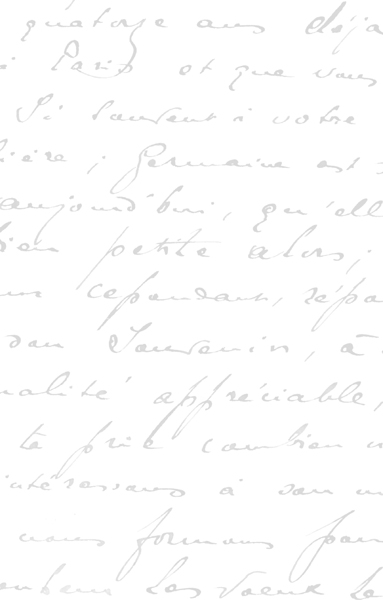 quatorze ans déjà
Paris et que vous
si souvent à votre
ière ; Germaine est
aujourd'hui, qu'elle
bien petite alors ;
cependant, répa
don Souvenir, à
nalité appréciable,
te prie combien
intéressons à son
nous formons pour
bonheur les voeux